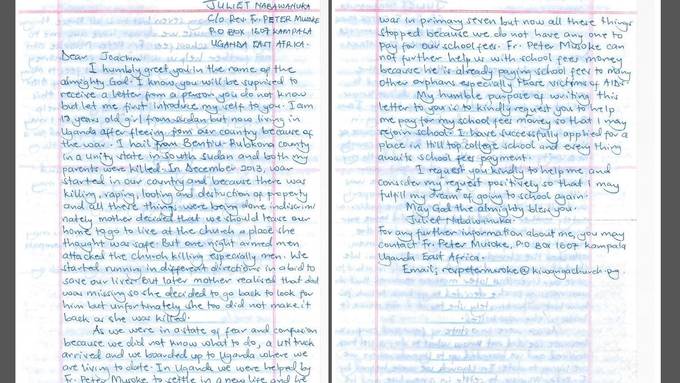 JULIET NABAWANUKA
C/O Rev. Fr. PETER MUSOKE
P.O BOX 1607 KAMPALA
UGANDA EAST AFRICA.
Dear Joachim
I humbly greet you in the name of the
almighty God. I know you will be suprised to
receive a letter from a person you do not know
but let me first introduce my self to you. I am
year old girl from sudan but now living in
Uganda after fleeing from our country because of
the war. I hail from Bentiu-Rubkona county
in a unity state in South Sudan and both my
parents were killed. In December 2013, war
started in our country and because there was
killing, raping, looting and distruction of property
and all there things were being done indiscrimi
nately mother decided that we should leave our
home to go to live at the church a place she
thought was safe. But one night armed men
attacked the church killing especially men. We
started running in different directions in a bid to
save our lives. But later mother realised that dad
was missing so she decided to go back to look for
him but unfortunately she too did not make it
back as she was killed.
As we were in a state of fear and confusion
because we did not know what to do, a UN truck
arrived and we boarded up to Uganda where we
are living to date. In Uganda we were helped by
Fr. Peter Musoke to settle in a new life and he
was in primary seven but now all these things
stopped because we do not have any one to
pay for our school fees. Fr. Peter Musoke can
not further help us with school fees money
because he is already paying school fees to many
other orphans especially those victims of AIDs.
My humble purpose of writing this
letter to you is to kindly request you to help
me pay for my school fees money so that I may
rejoin school. I have successfully applied for a
place in Hill top college school and every thing
awaits school fees payment.
I request you kindly to help me and
consider my request positively so that i may
fulfill my dream of going to school again.
May God the almighty bless you.
Juliet Nabawanuka.
For any further information about me, you may
contact Fr. Peter Musoke, P.O BOX 1607 Kampala
Uganda East Africa.
Email; revpetermusoke@